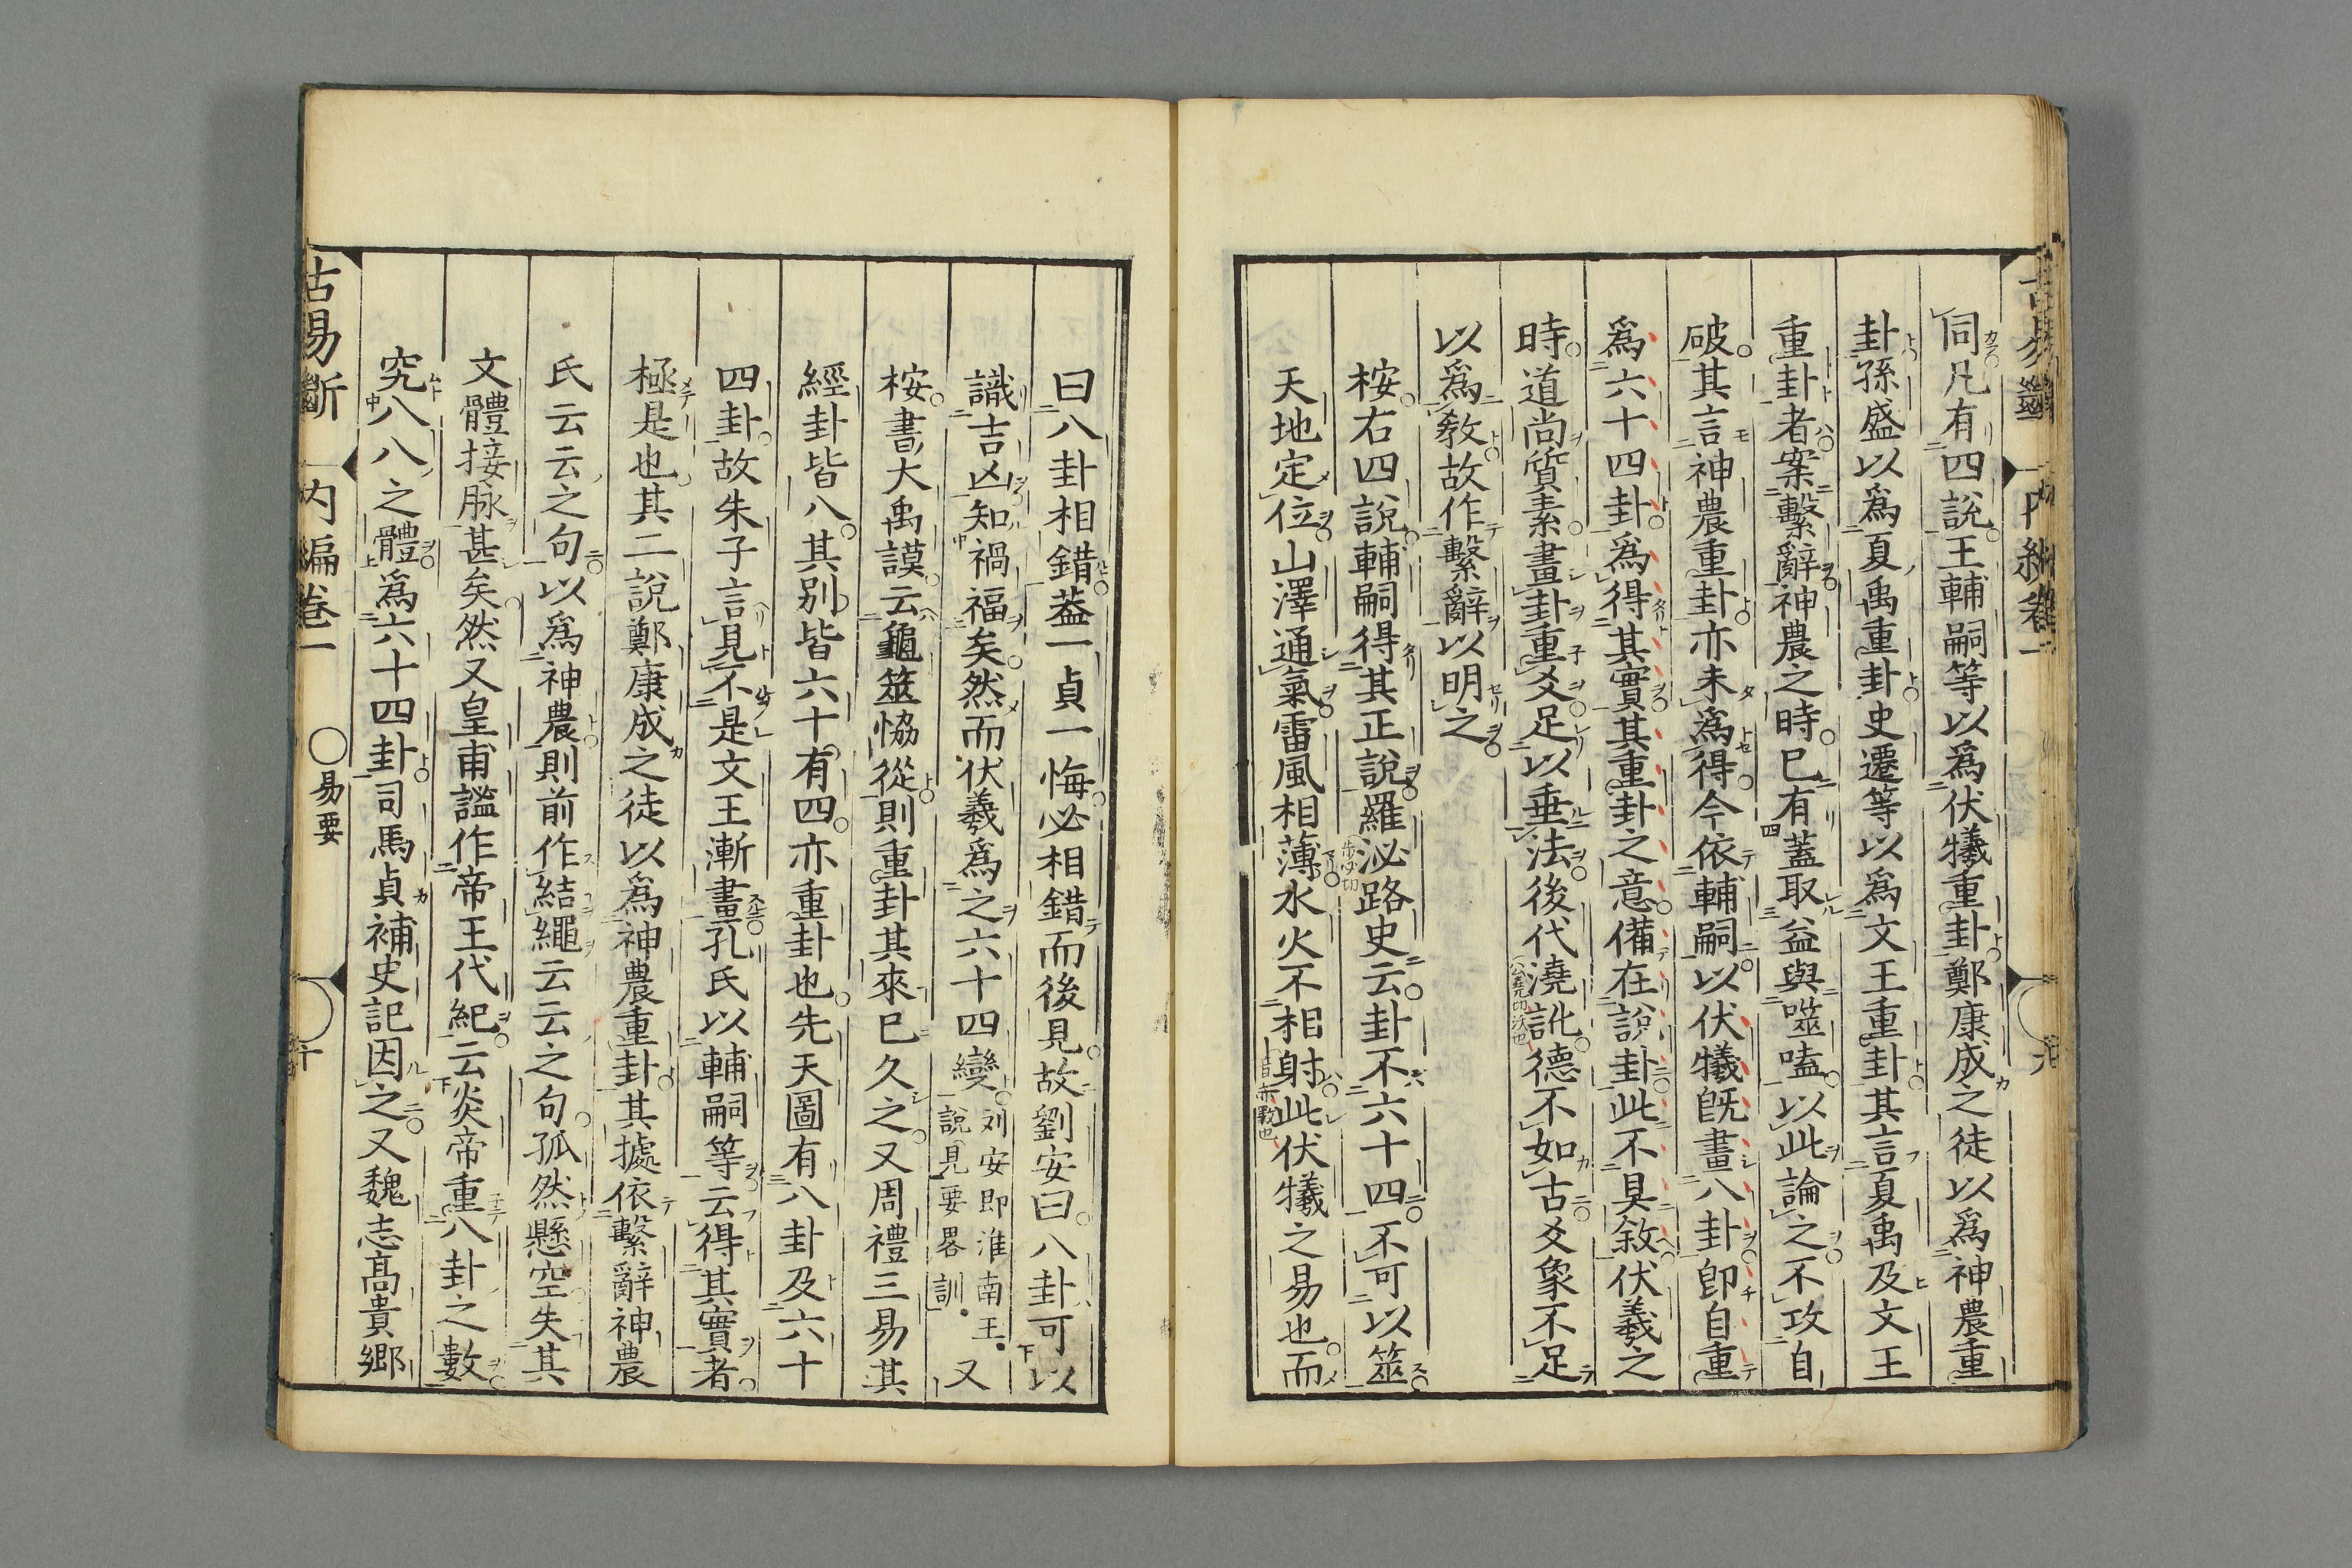 同凡有四說王輔嗣等以爲伏犧重卦鄭康成之徒以爲神農重
卦孫盛以爲夏禹重卦史遷等以爲文王重卦其言夏禹及文王
重卦者案繫辭神農之時已有蓋取益與噬嗑以此論之不攻自
破其言神農重卦亦未爲得今依輔嗣以伏犧旣畫八卦卽自重
爲六十四卦爲得其實其重卦之意備在說卦此不具敘伏羲之
時道尚質素畫卦重爻足以垂法後代澆訛德不如古爻象不足
以爲敎故作繫辭以明之
桉右四說輔嗣得其正說羅泌路史云卦不六十四不可以筮
天地定位山澤通氣雷風相薄水火不相射此伏犧之易也而
曰八卦相錯葢一貞一悔必相錯而後見故劉安曰八卦可以
識吉凶知禍福矣然而伏羲爲之六十四變刘安即淮南王說見要畧訓又
桉書大禹謨云龜筮恊從則重卦其來已久之又周禮三易其
經卦皆八其別皆六十有四亦重卦也先天圖有八卦及六十
四卦故朱子言見不是文王漸畫孔氏以輔嗣等云得其實者
極是也其二說鄭康成之徒以爲神農重卦其據依繫辭神農
氏云云之句以爲神農則前作結繩云云之句孤然懸空失其
文體接脉甚矣然又皇甫謐作帝王代紀云炎帝重八卦之數
究八八之體爲六十四卦司馬貞補史記因之又魏志高貴鄉
古易斷 內編卷一 ○易要 十